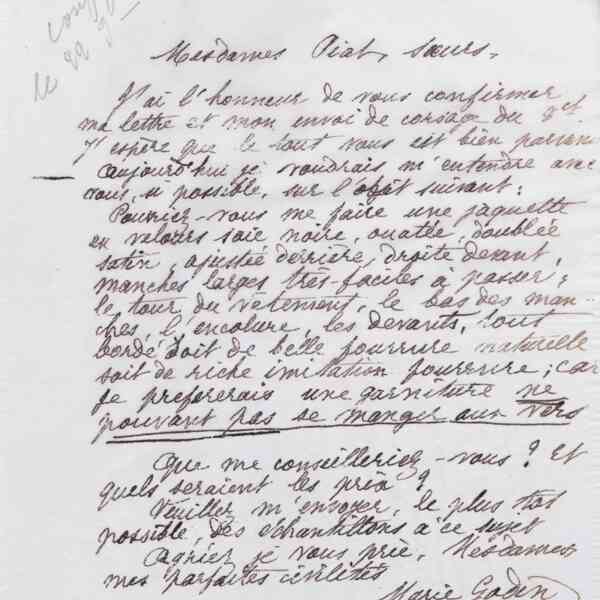 le 22
Mesdames Piat, sœurs,
J'ai l'honneur de vous confirmer
ma lettre et mon envoi de corsage du 8 et
j'espère que le tout vous est bien parvenu
aujourd'hui je voudrais m'entendre avec
vous, si possible, sur l'objet suivant:
Pourriez-vous me faire une jaquette
en velours soie noire, ouatée, doublée
satin, ajustée derrière, droite devant,
manches larges très-faciles à passer;
le tour du vêtement, le bas des man-
ches, l'encolure, les devants, tout
bordé soit de belle fourrure naturelle
soit de riche imitation fourrure; car
je préférerais une garniture ne
pouvant pas se manger aux vers
Que me conseilleriez-vous? Et
quels seraient les prix?
Veuillez m'envoyer, le plus tôt
possible, des échantillons à ce sujet
Agréez, je vous prie, Mesdames
mes parfaites civilités
Marie Godin